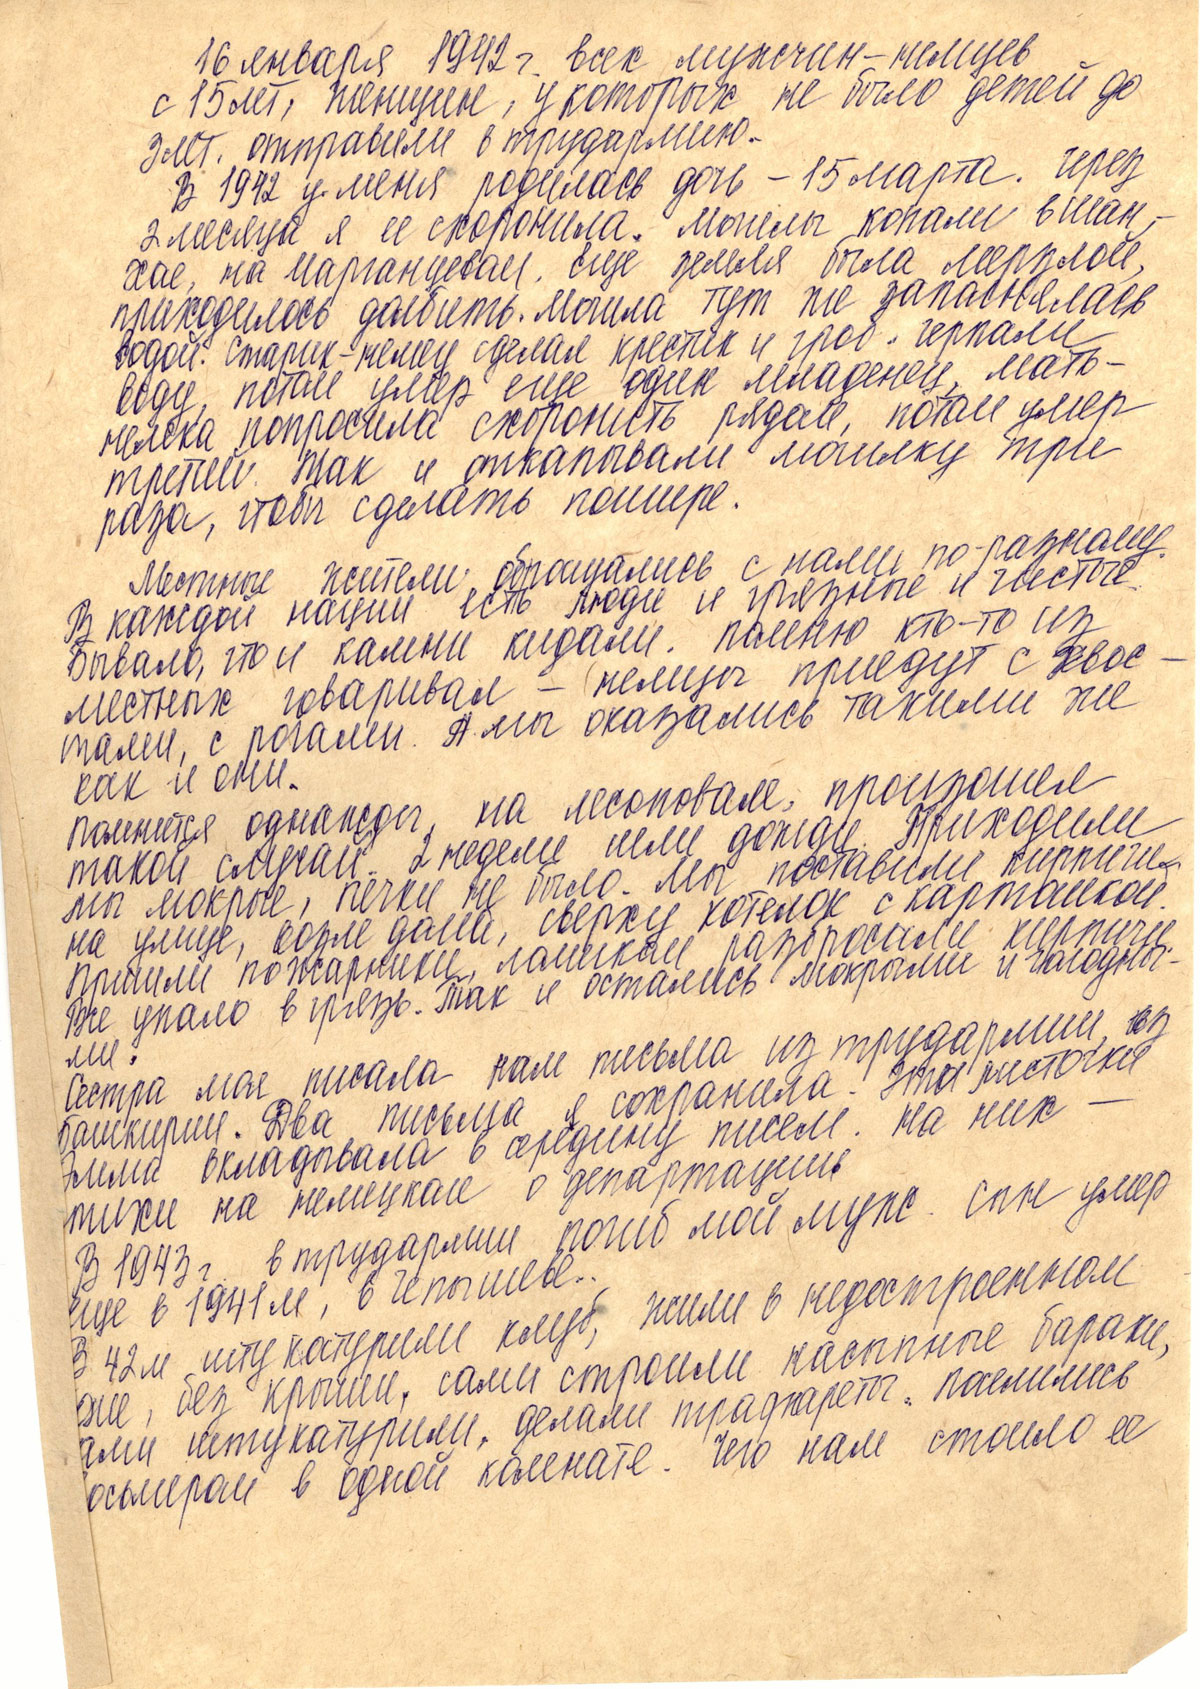 16 января 1942 г. всех мужчин-немцев
с 15 лет, женщин, у которых не было детей до
3 лет. отправили в трудармию.
В 1942 у меня родилась дочь - 15 марта. Через
2 месяца я ее схоронила. Могилы копали в Шан-
хае, на Марганцевом. Еще земля была мерзлой,
приходилось долбить. Могила тут же заполнялась
водой. Старик-немец сделал крестик и гроб. Черпали
воду, потом умер еще один младенец, мать-
немка попросила схоронить рядом, потом умер
третий. Так и откапывали могилку три
раза, чтобы сделать пошире.
Местные жители обращались с нами по-разному.
В каждой нации есть люди и грязные и чистые.
Бывало, что и камни кидали. Помню кто-то из
местных говаривал - немцы приедут с хвос-
тами, с рогами. А мы оказались такими же
как и они.
Помнится однажды, на лесоповале, произошел
такой случай. 2 недели шли дожди. Приходили
мы мокрые, печки не было. Мы поставили кирпичи
на улице, возле дома, сверху котелок с картошкой.
Пришли пожарники, ломиком разбросали кирпичи.
Все упало в грязь. Так и остались мокрыми и голодны-
ми.
Сестра моя писала нам письма из трудармии, из
Башкирии. Два письма я сохранила. Эти листочки
Эмма вкладывала в середину писем. На них -
тихи на немецком о депортации
В 1943 г. в трудармии погиб мой муж. Сын умер
еще в 1941 м, в Чепышеве..
В 42 м штукатурили клуб, жили в недостроенном
же, без крыши, сами строили насыпные бараки,
ами штукатурили, делали трафареты. Поселились
осьмером в одной комнате. Чего нам стоило ее